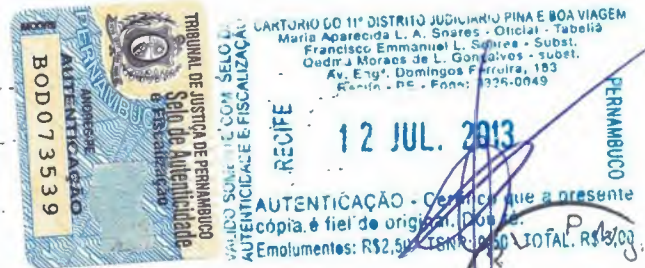 TRIBUNAL DE JUSTIÇA DE PERNAMBUCO
Selo de Autenticidade
e Fiscalização
PERNAMBUCO
ANOREG-PE
AUTENTICAÇÃO
BOD073539
VALIDO SOMENTE COM SELO DE
AUTENTICIDADE E FISCALIZAÇÃO
CARTÓRIO DO 11º DISTRITO JUDICIÁRIO PINA E BOA VIAGEM
Maria Aparecida L. A. Soares - Oficial - Tabeliã
Francisco Emmanuel L. Soares - Subst.
Moraes de L. Gonçalves - Subst.
Av. Engº. Domingos Ferreira, 183
Recife - PE - Fone: 3326-0049
RECIFE
12 JUL. 2013
PERNAMBUCO
AUTENTICAÇÃO - Certifico que a presente
cópia é fiel do original. Dou fé.
Emolumentos: R$2,50 TSNR 0,50 TOTAL. R$3,00